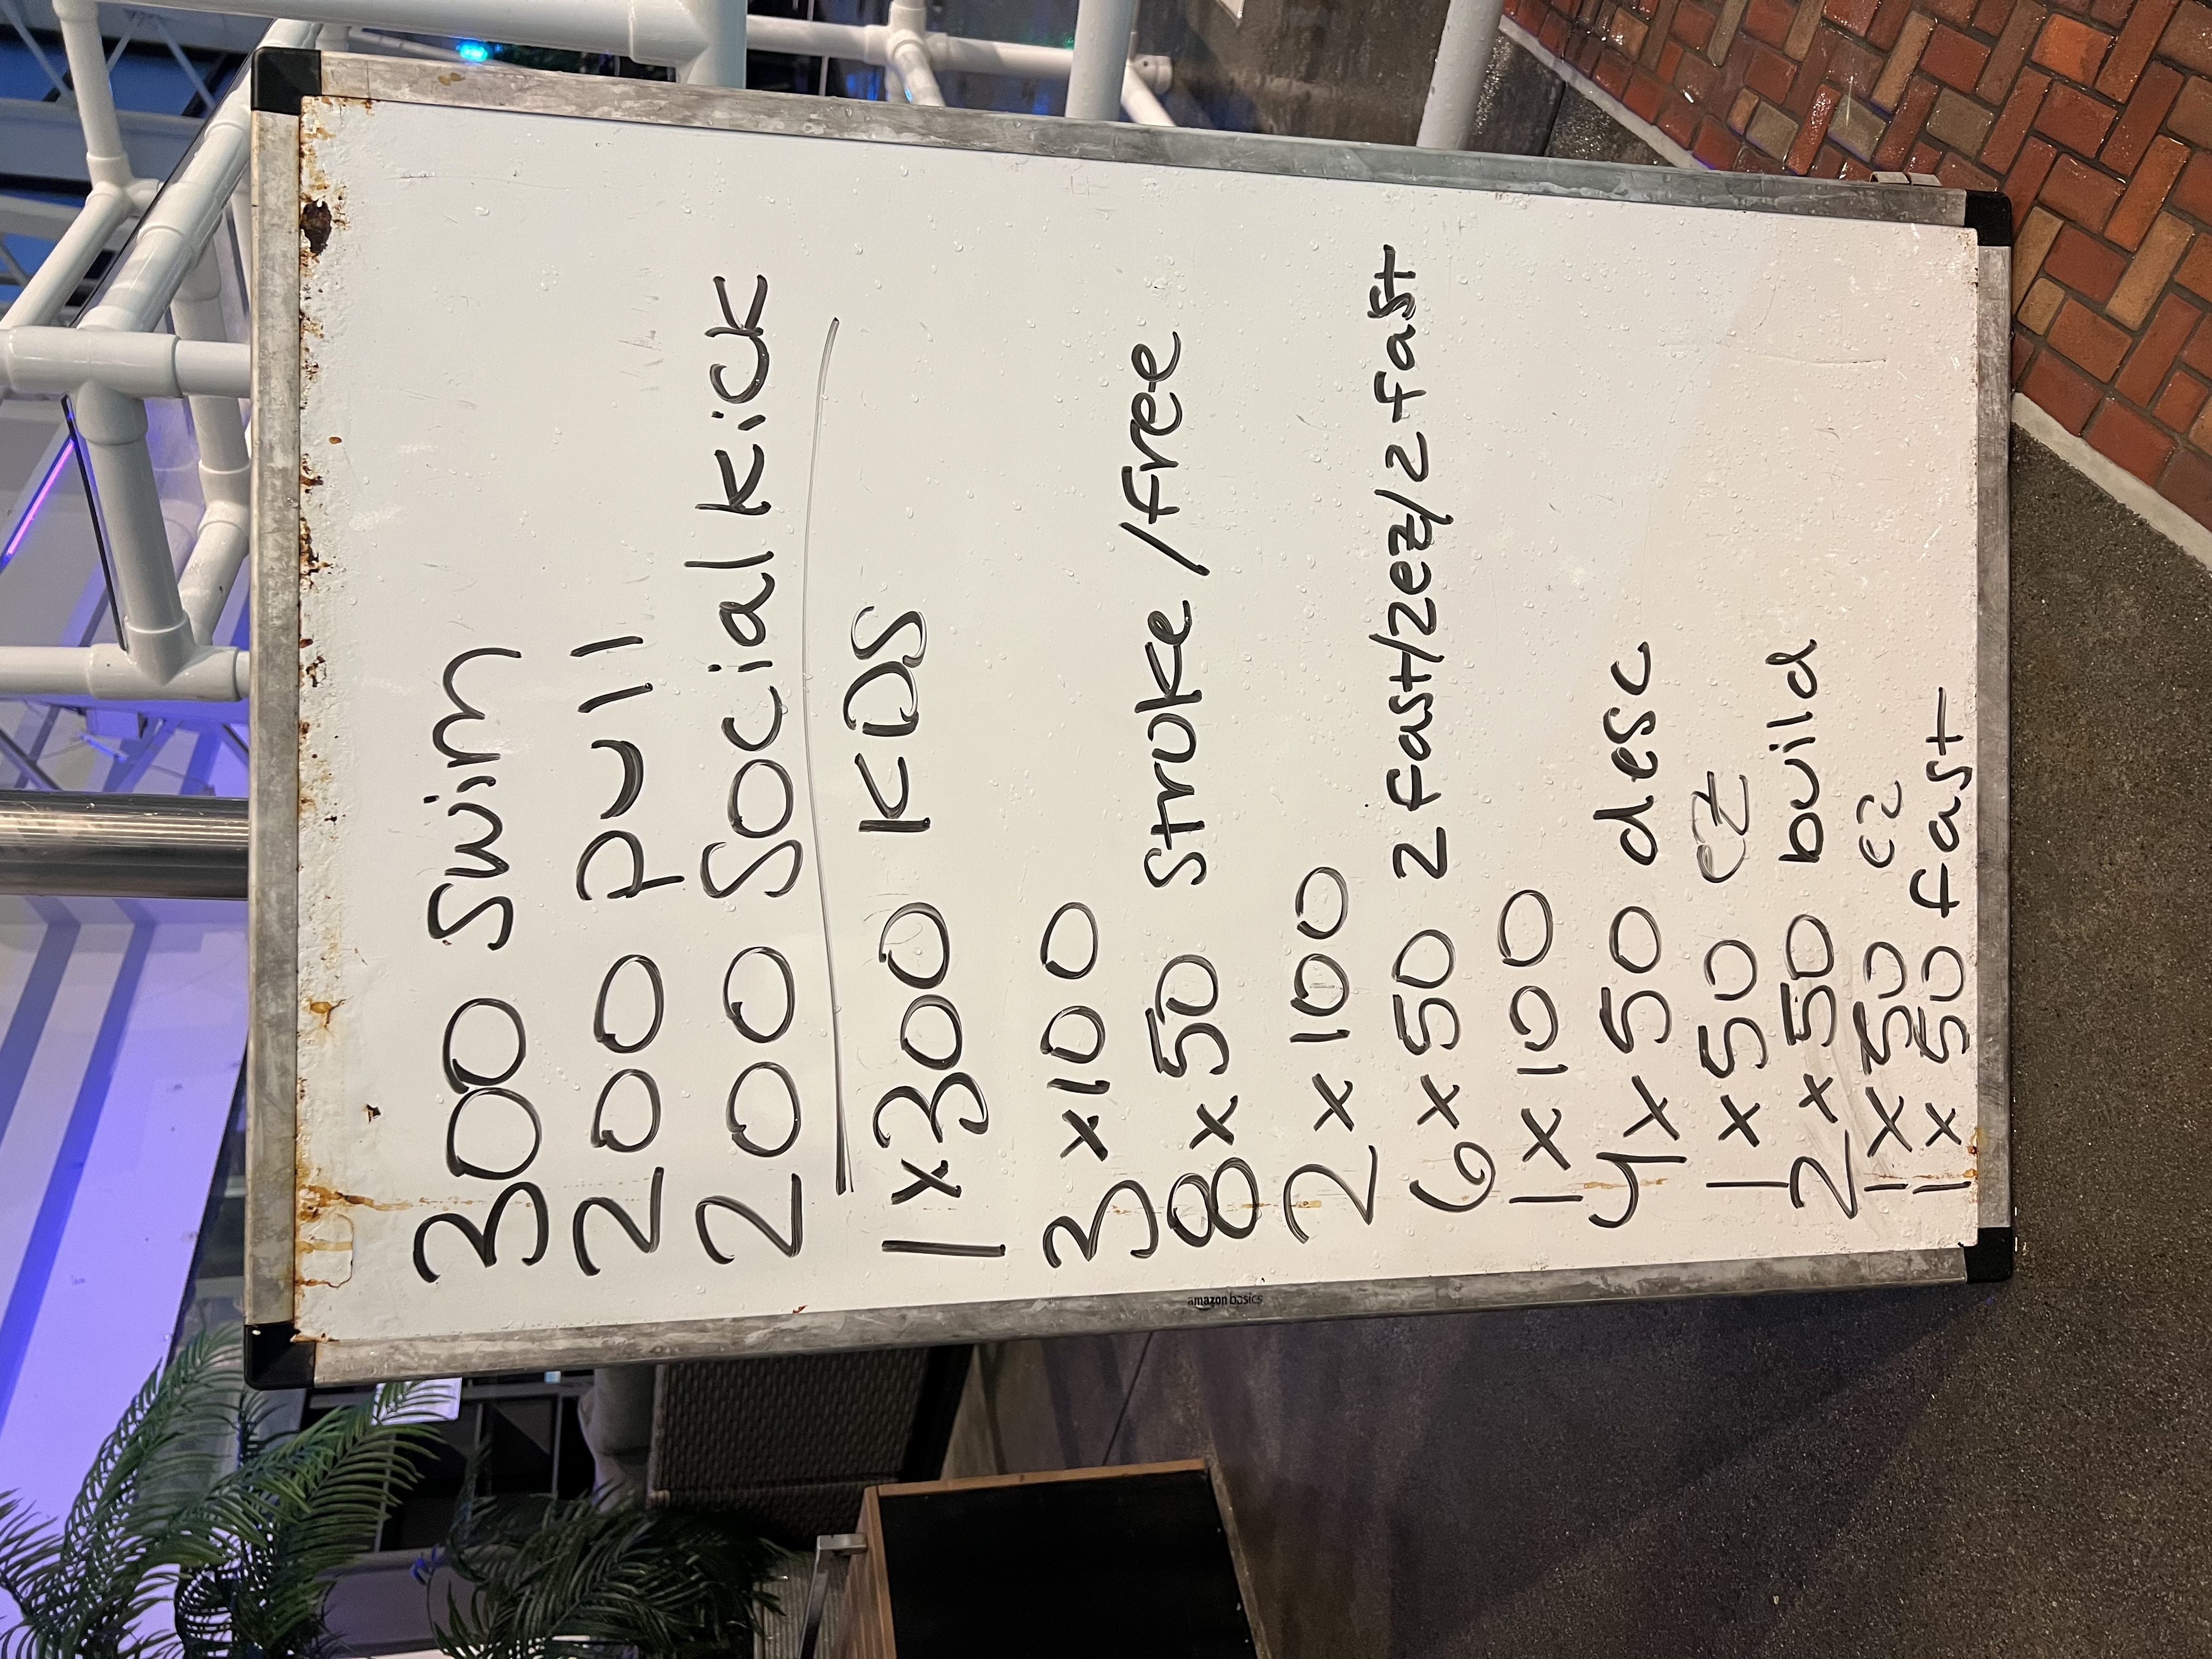 300 Swim
200 pull
200 Social kick
1x300 KDS
3x100
8x50 Stroke/free
2x100
6x50 2 fast/2ez/2 fast
1x100
4x50 desc
1x50 ez
2x50 build
1x50 ez
1x50 fast
amazon basics